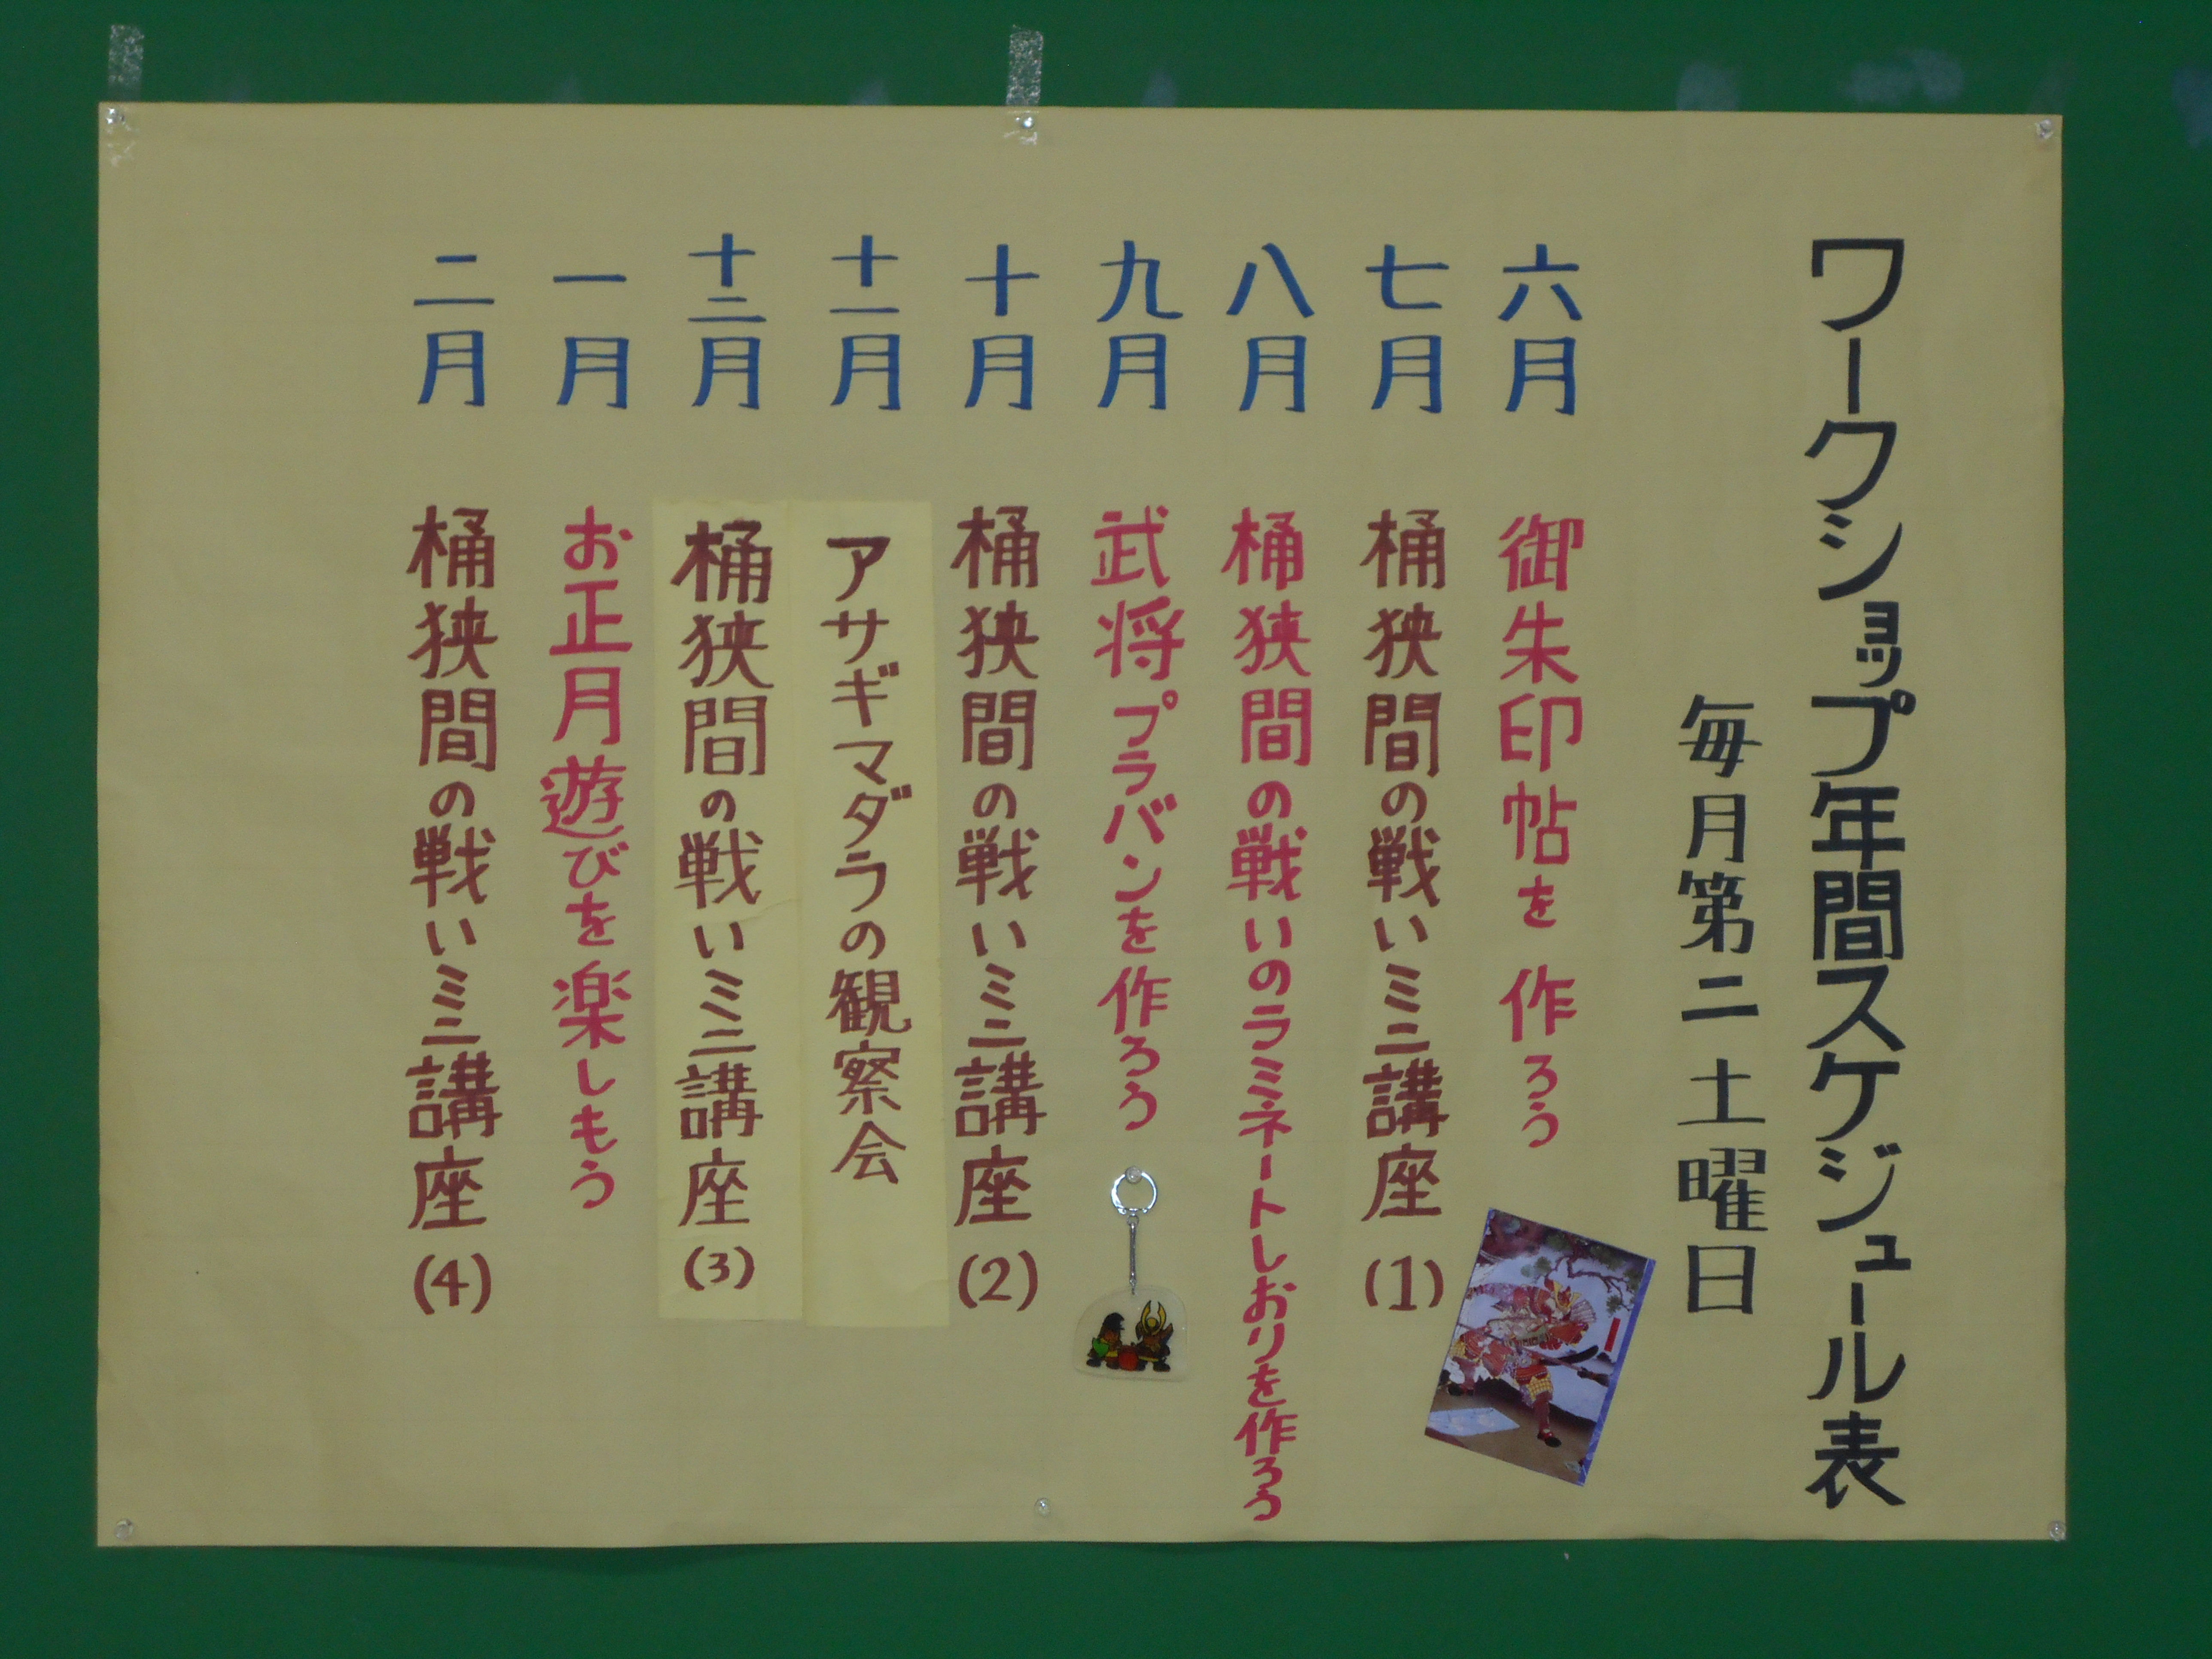 ワークショップ年間スケジュール表
毎月第二土曜日
六月 御朱印帖を作ろう
七月 桶狭間の戦いミニ講座(1)
八月 桶狭間の戦いのラミネートしおりを作ろう
九月 武将プラバンを作ろう
十月 桶狭間の戦いミニ講座(2)
十一月 アサギマダラの観察会
十二月 桶狭間の戦いミニ講座(3)
一月 お正月遊びを楽しもう
二月 桶狭間の戦いミニ講座(4)